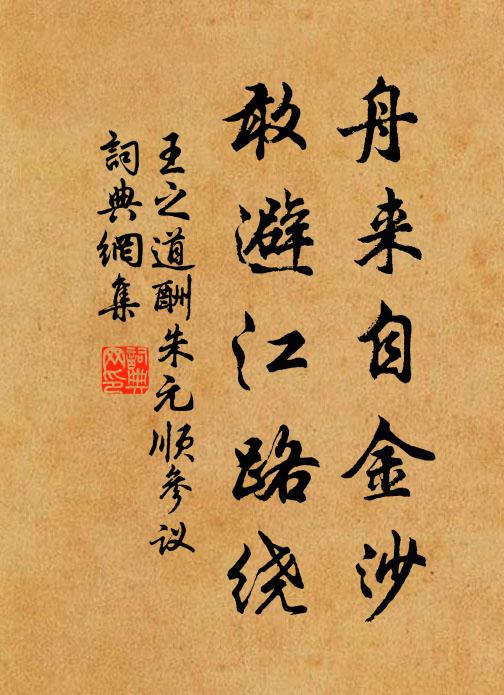 舟来自金沙
敢避江路绕
王之道酬朱元顺参议
詞典網集
詞典
网印